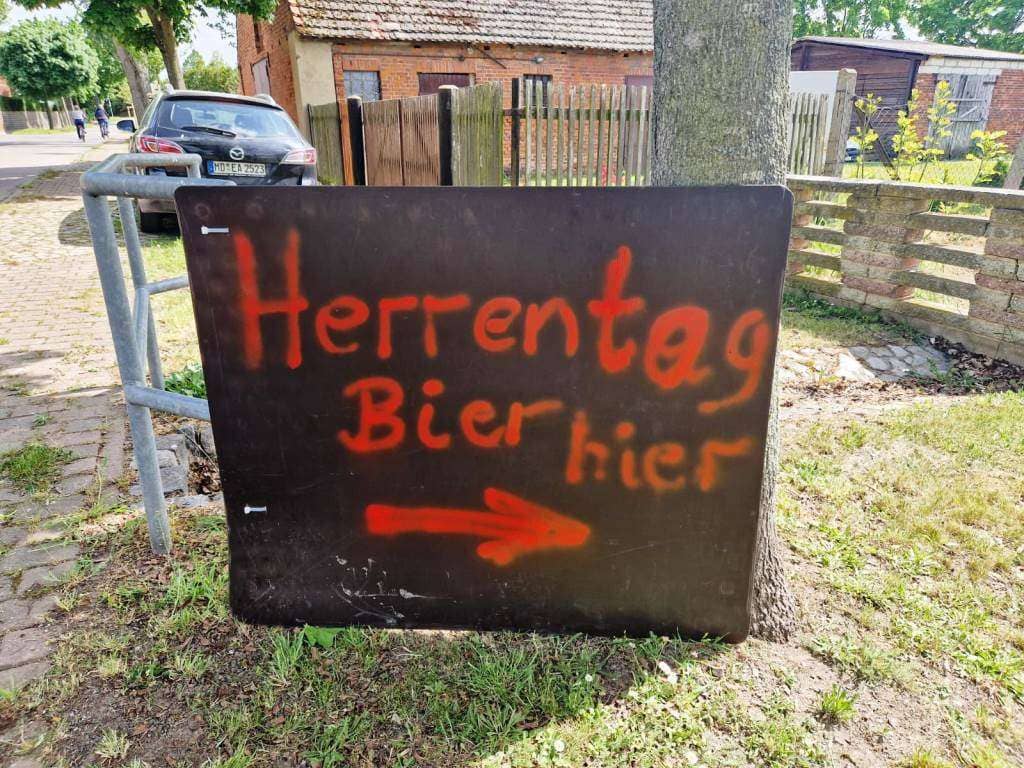 MD EA 2523
Herrentag
Bier hier